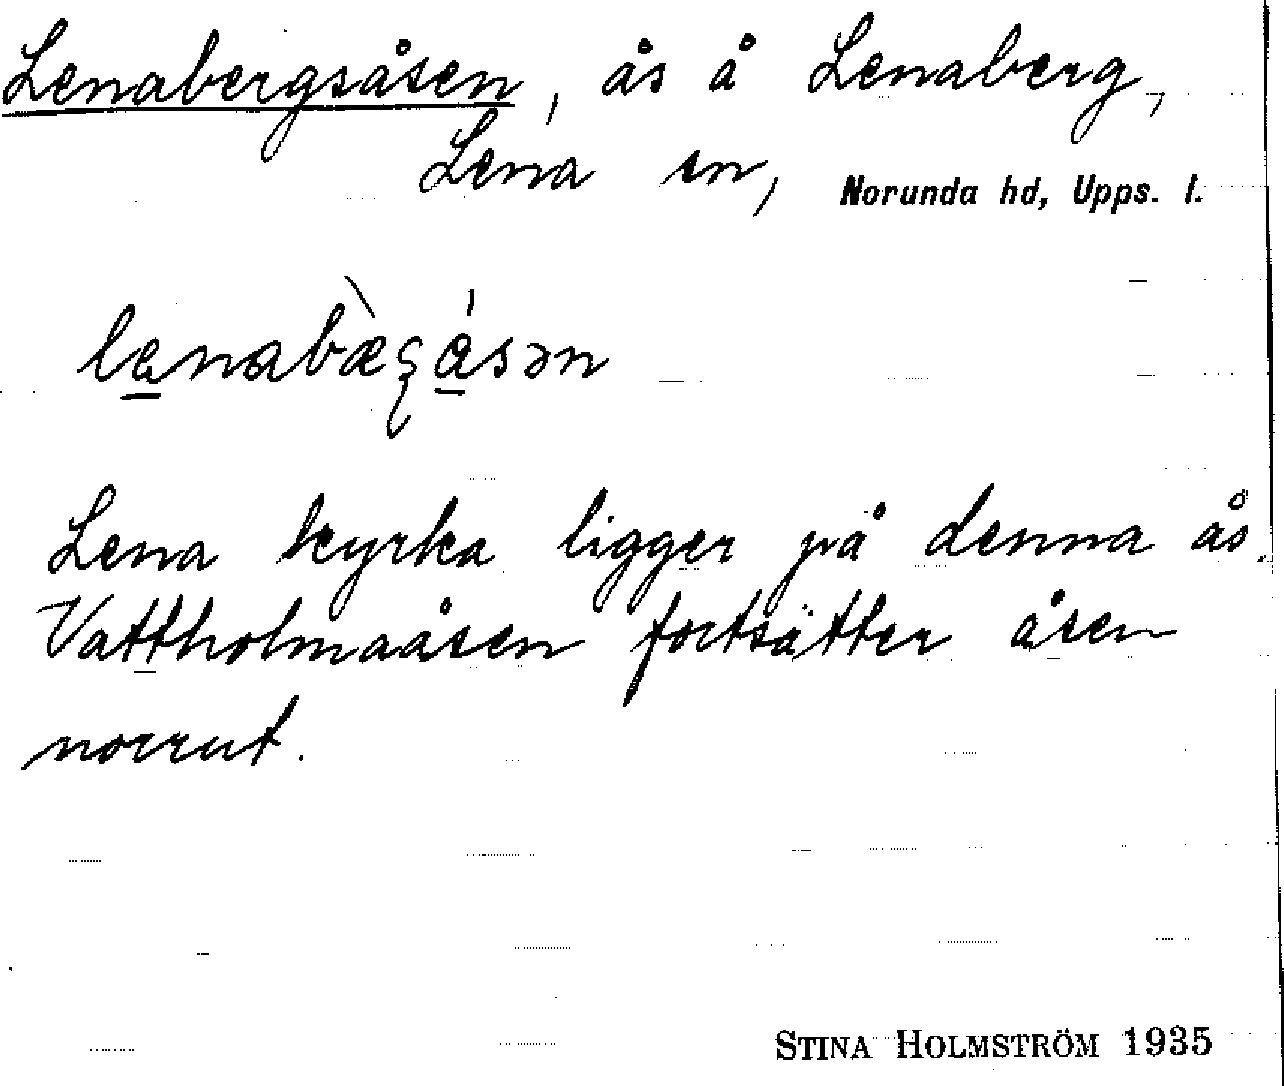 Lenabergsåsen, ås å Lenaberg,
Lena sn, Norunda hd, Upps. l.
Lena kyrka ligger på denna ås.
Vattholmaåsen fortsätter åsen
norrut.
STINA HOLMSTRÖM 1935